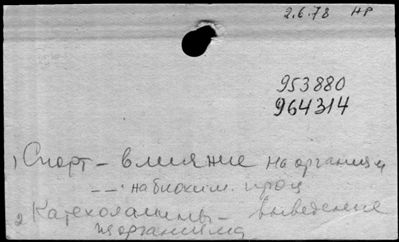 2.6.78 НР
953880
964314
1 Спорт – влияние на организм
– – : на биохим. проц
2 Катехоламины – выведение
из организма